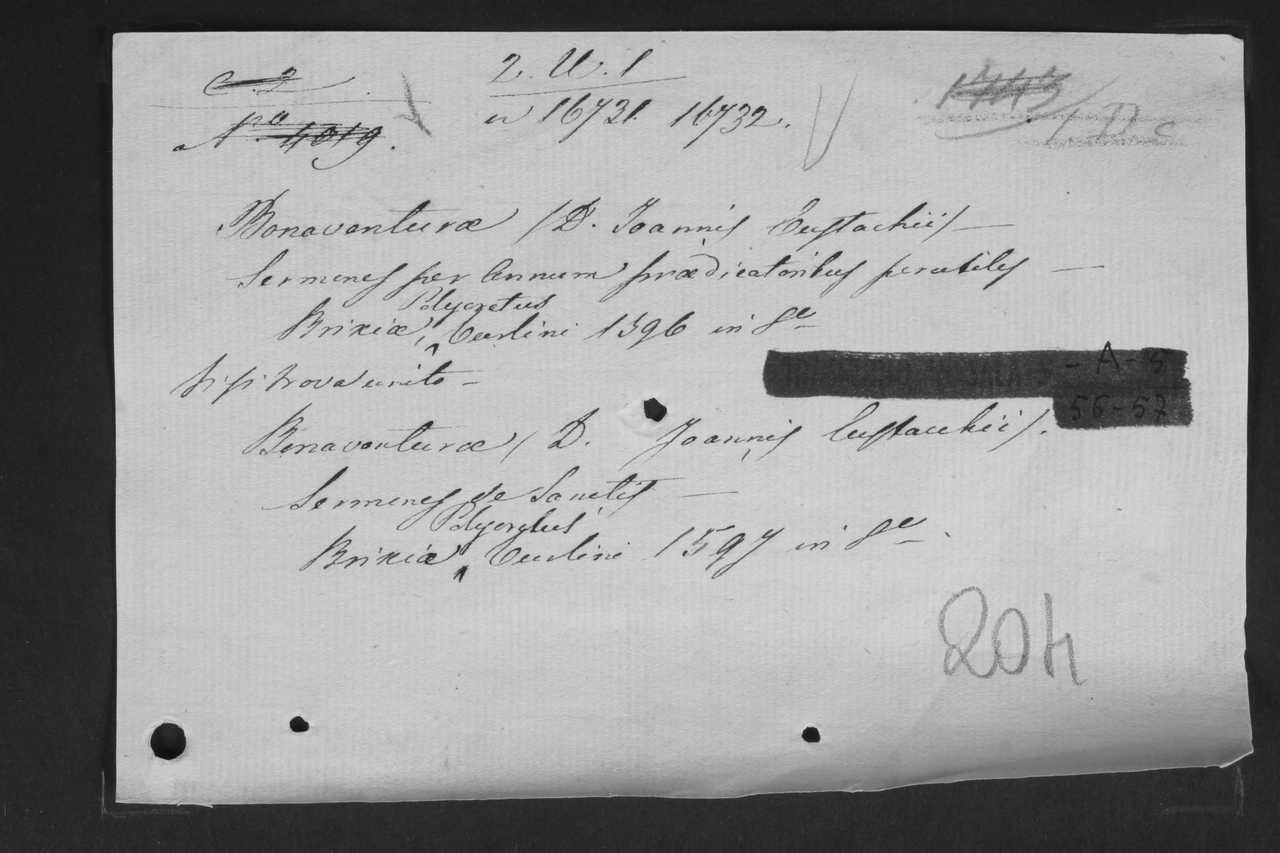 C. 2. 2. U. 1
nº 16731. 16732.
Nro 4019. 1743 / D c
Bonaventuræ (D. Joannis Eustachii) —
Sermones per Annum prædicatoribus perutiles —
Polycretus
Brixiæ, Turlini 1596 in 8º
Si si trova unito —
- A - 5
56-57
Bonaventuræ (D. Joannis Eustachii).
Sermones de Sanctis —
Polycretus
Brixiæ, Turlini 1597 in 8º.
204